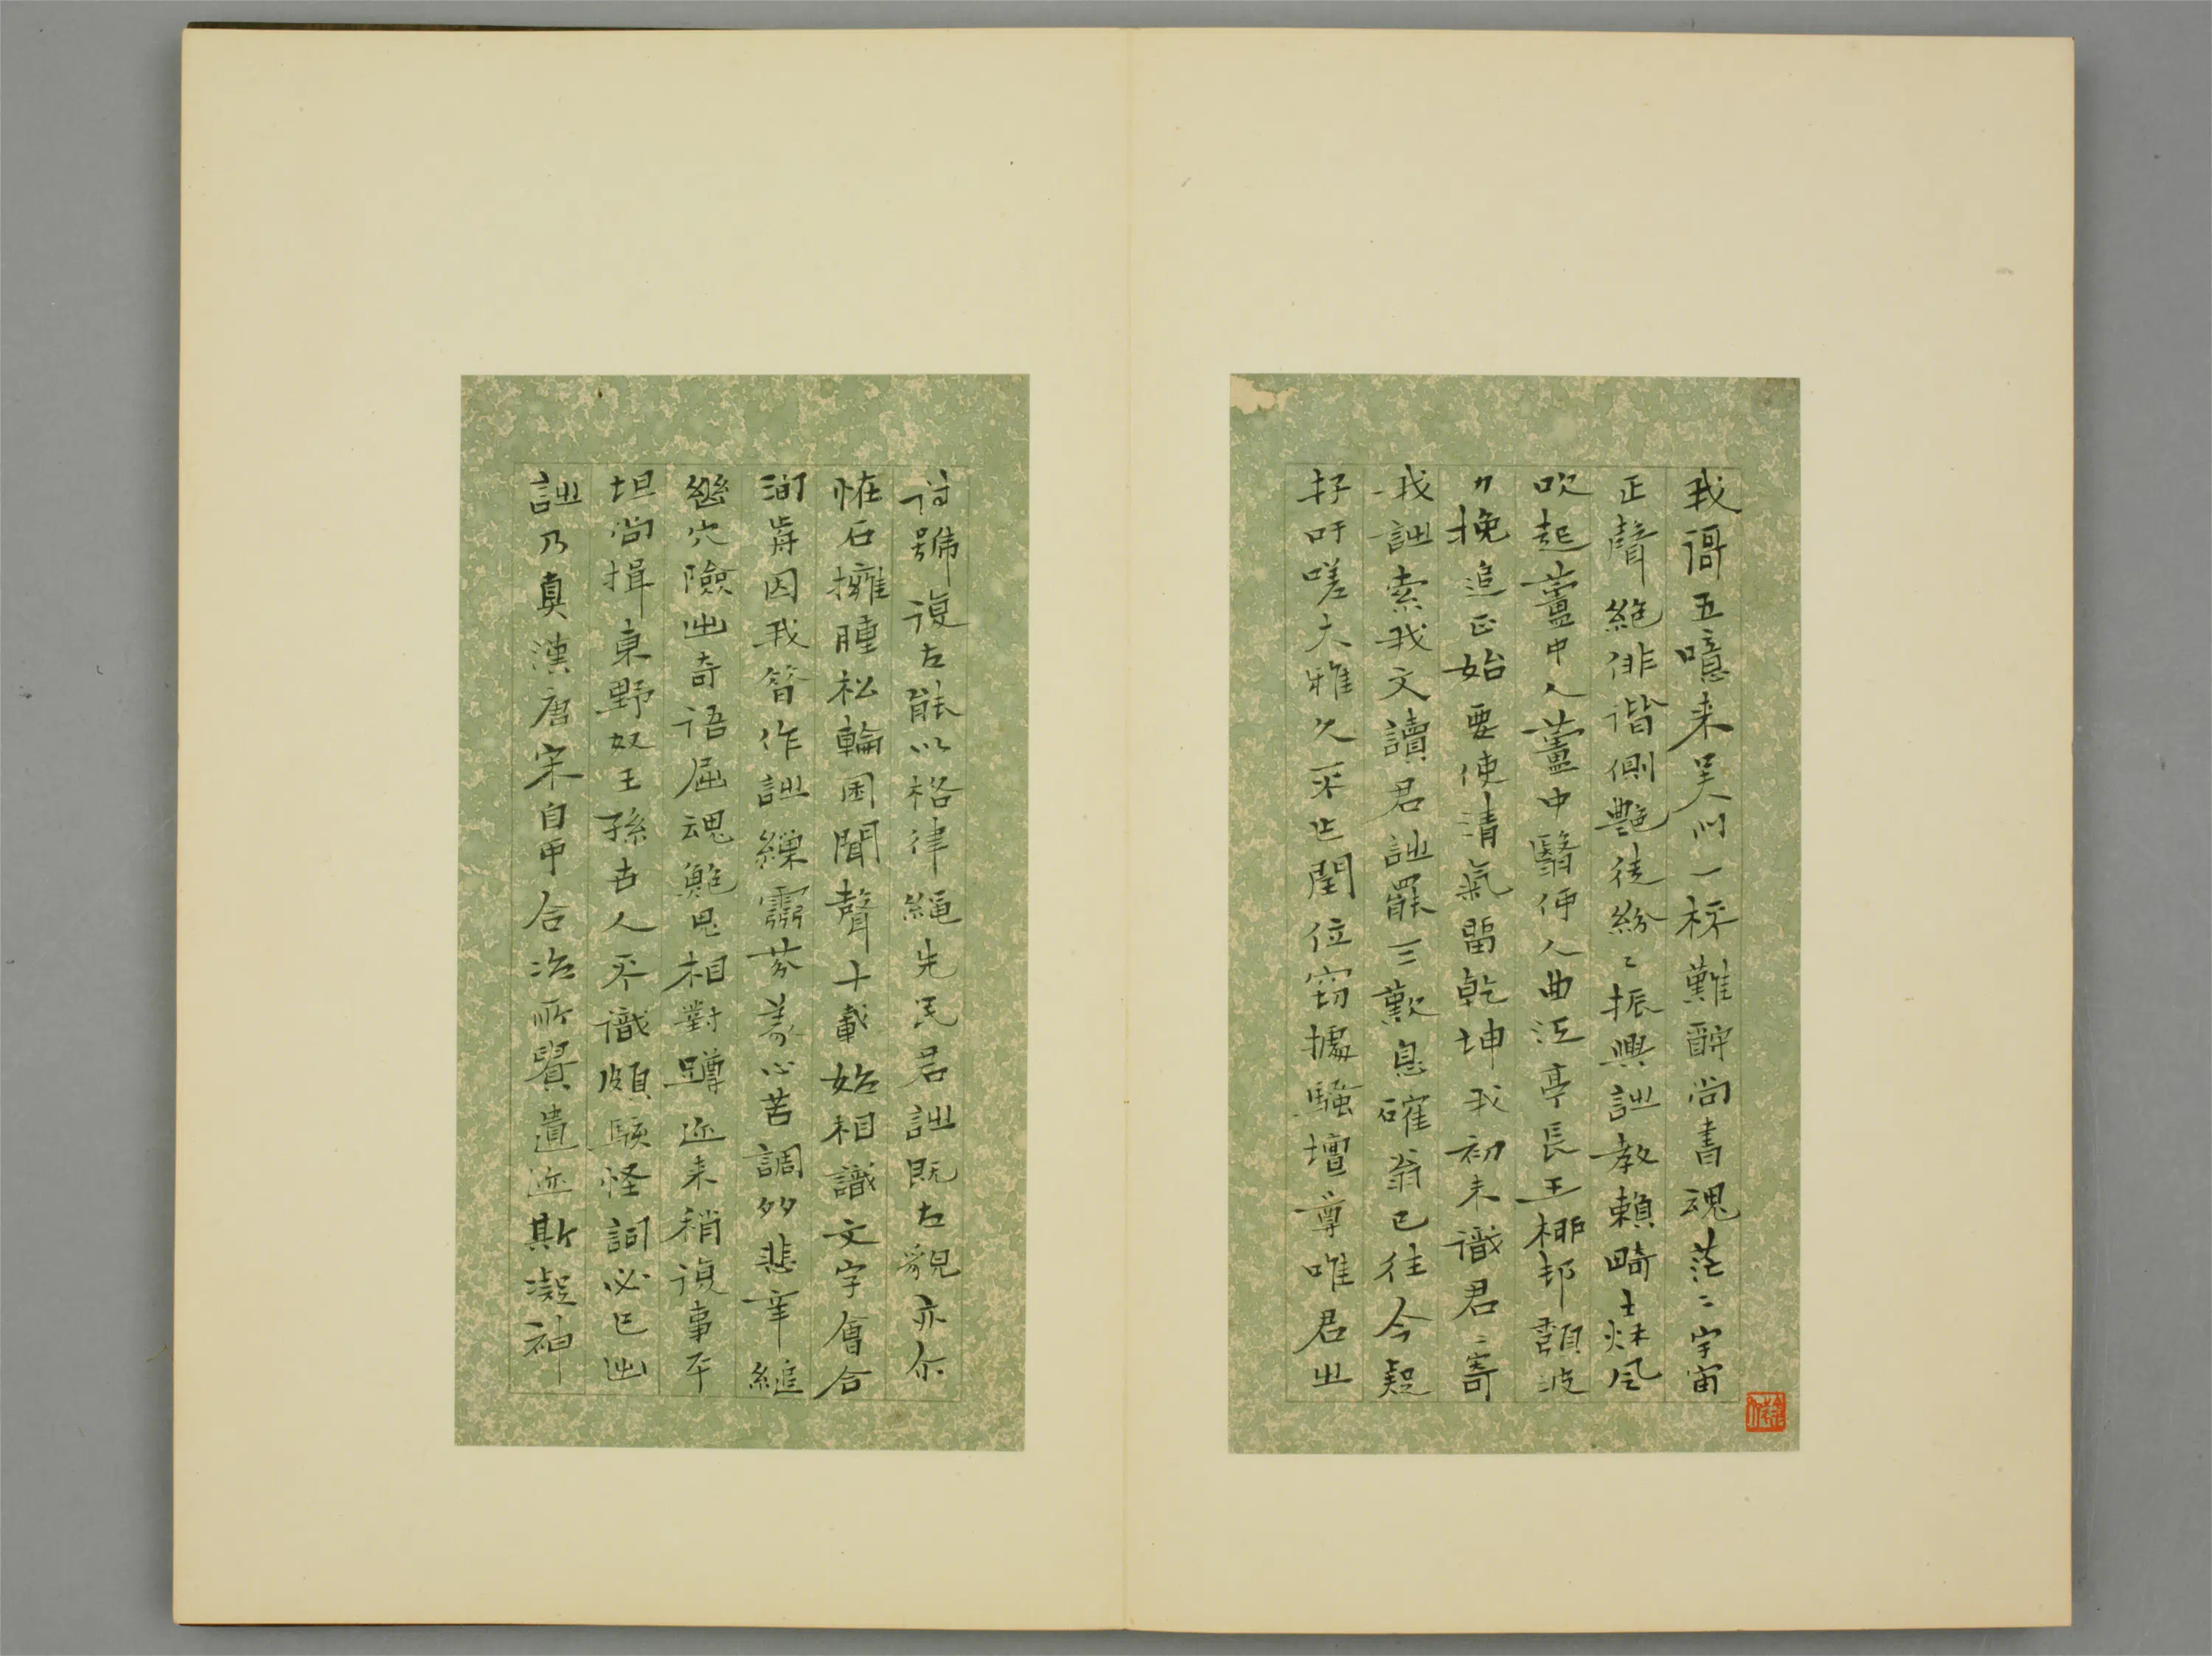 我謌五噫来吴門一桮難酹尚書魂茫〻宇宙
正聲絕俳谐側艷徒紛〻振興詩教賴畸士烌風
吹起蘆中人蘆中翳伊人曲江亭長王梛邨頽波
〃挽追正始要使清氣留乾坤我初未識君〻寄
我詩索我文讀君詩罷三歎息確翁已往今疑
存吁嗟大雅久不閏位窃據騷壇尊唯君㞢
詩號復古能以格律繩先民君詩既古貌亦尔
怪石擁腫松輪囷聞聲十載始相識文字會合
洵有因我昔作詩繅靈芬羕心苦調多悲辛縋
幽穴險出奇語屈魂鮑鬼相對蹲近来稍復事平
坦尚揖東野奴王孫古人不識頗駭怪詞必己出
詩乃真漢唐宋自甲合冶所貴遺迹斯凝神